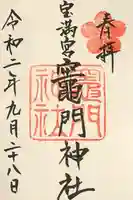 奉拝
宝満宮
竈門神社
竈門神社
令和二年九月二十八日